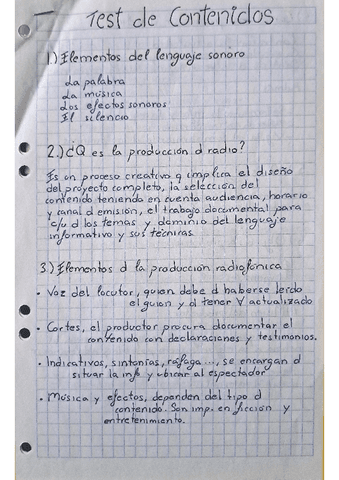 Test de Contenidos
1.) Elementos del lenguaje sonoro
La palabra
La música
Los efectos sonoros
El silencio
2.) ¿Q es la producción d radio?
Es un proceso creativo q implica el diseño
del proyecto completo, la selección del
contenido teniendo en cuenta audiencia, horario
y canal d emisión, el trabajo documental para
c/u d los temas y dominio del lenguaje
informativo y sus técnicas
3.) Elementos d la producción radiofónica
• Voz del locutor, quien debe d haberse leído
el guion y d tener ∀ actualizado
• Cortes, el productor procura documentar el
contenido con declaraciones y testimonios.
• Indicativos, sintonías, ráfaga..., se encargan d
situar la info y ubicar al espectador
• Música y efectos, dependen del tipo d
contenido. Son imp. en ficción y
entretenimiento.